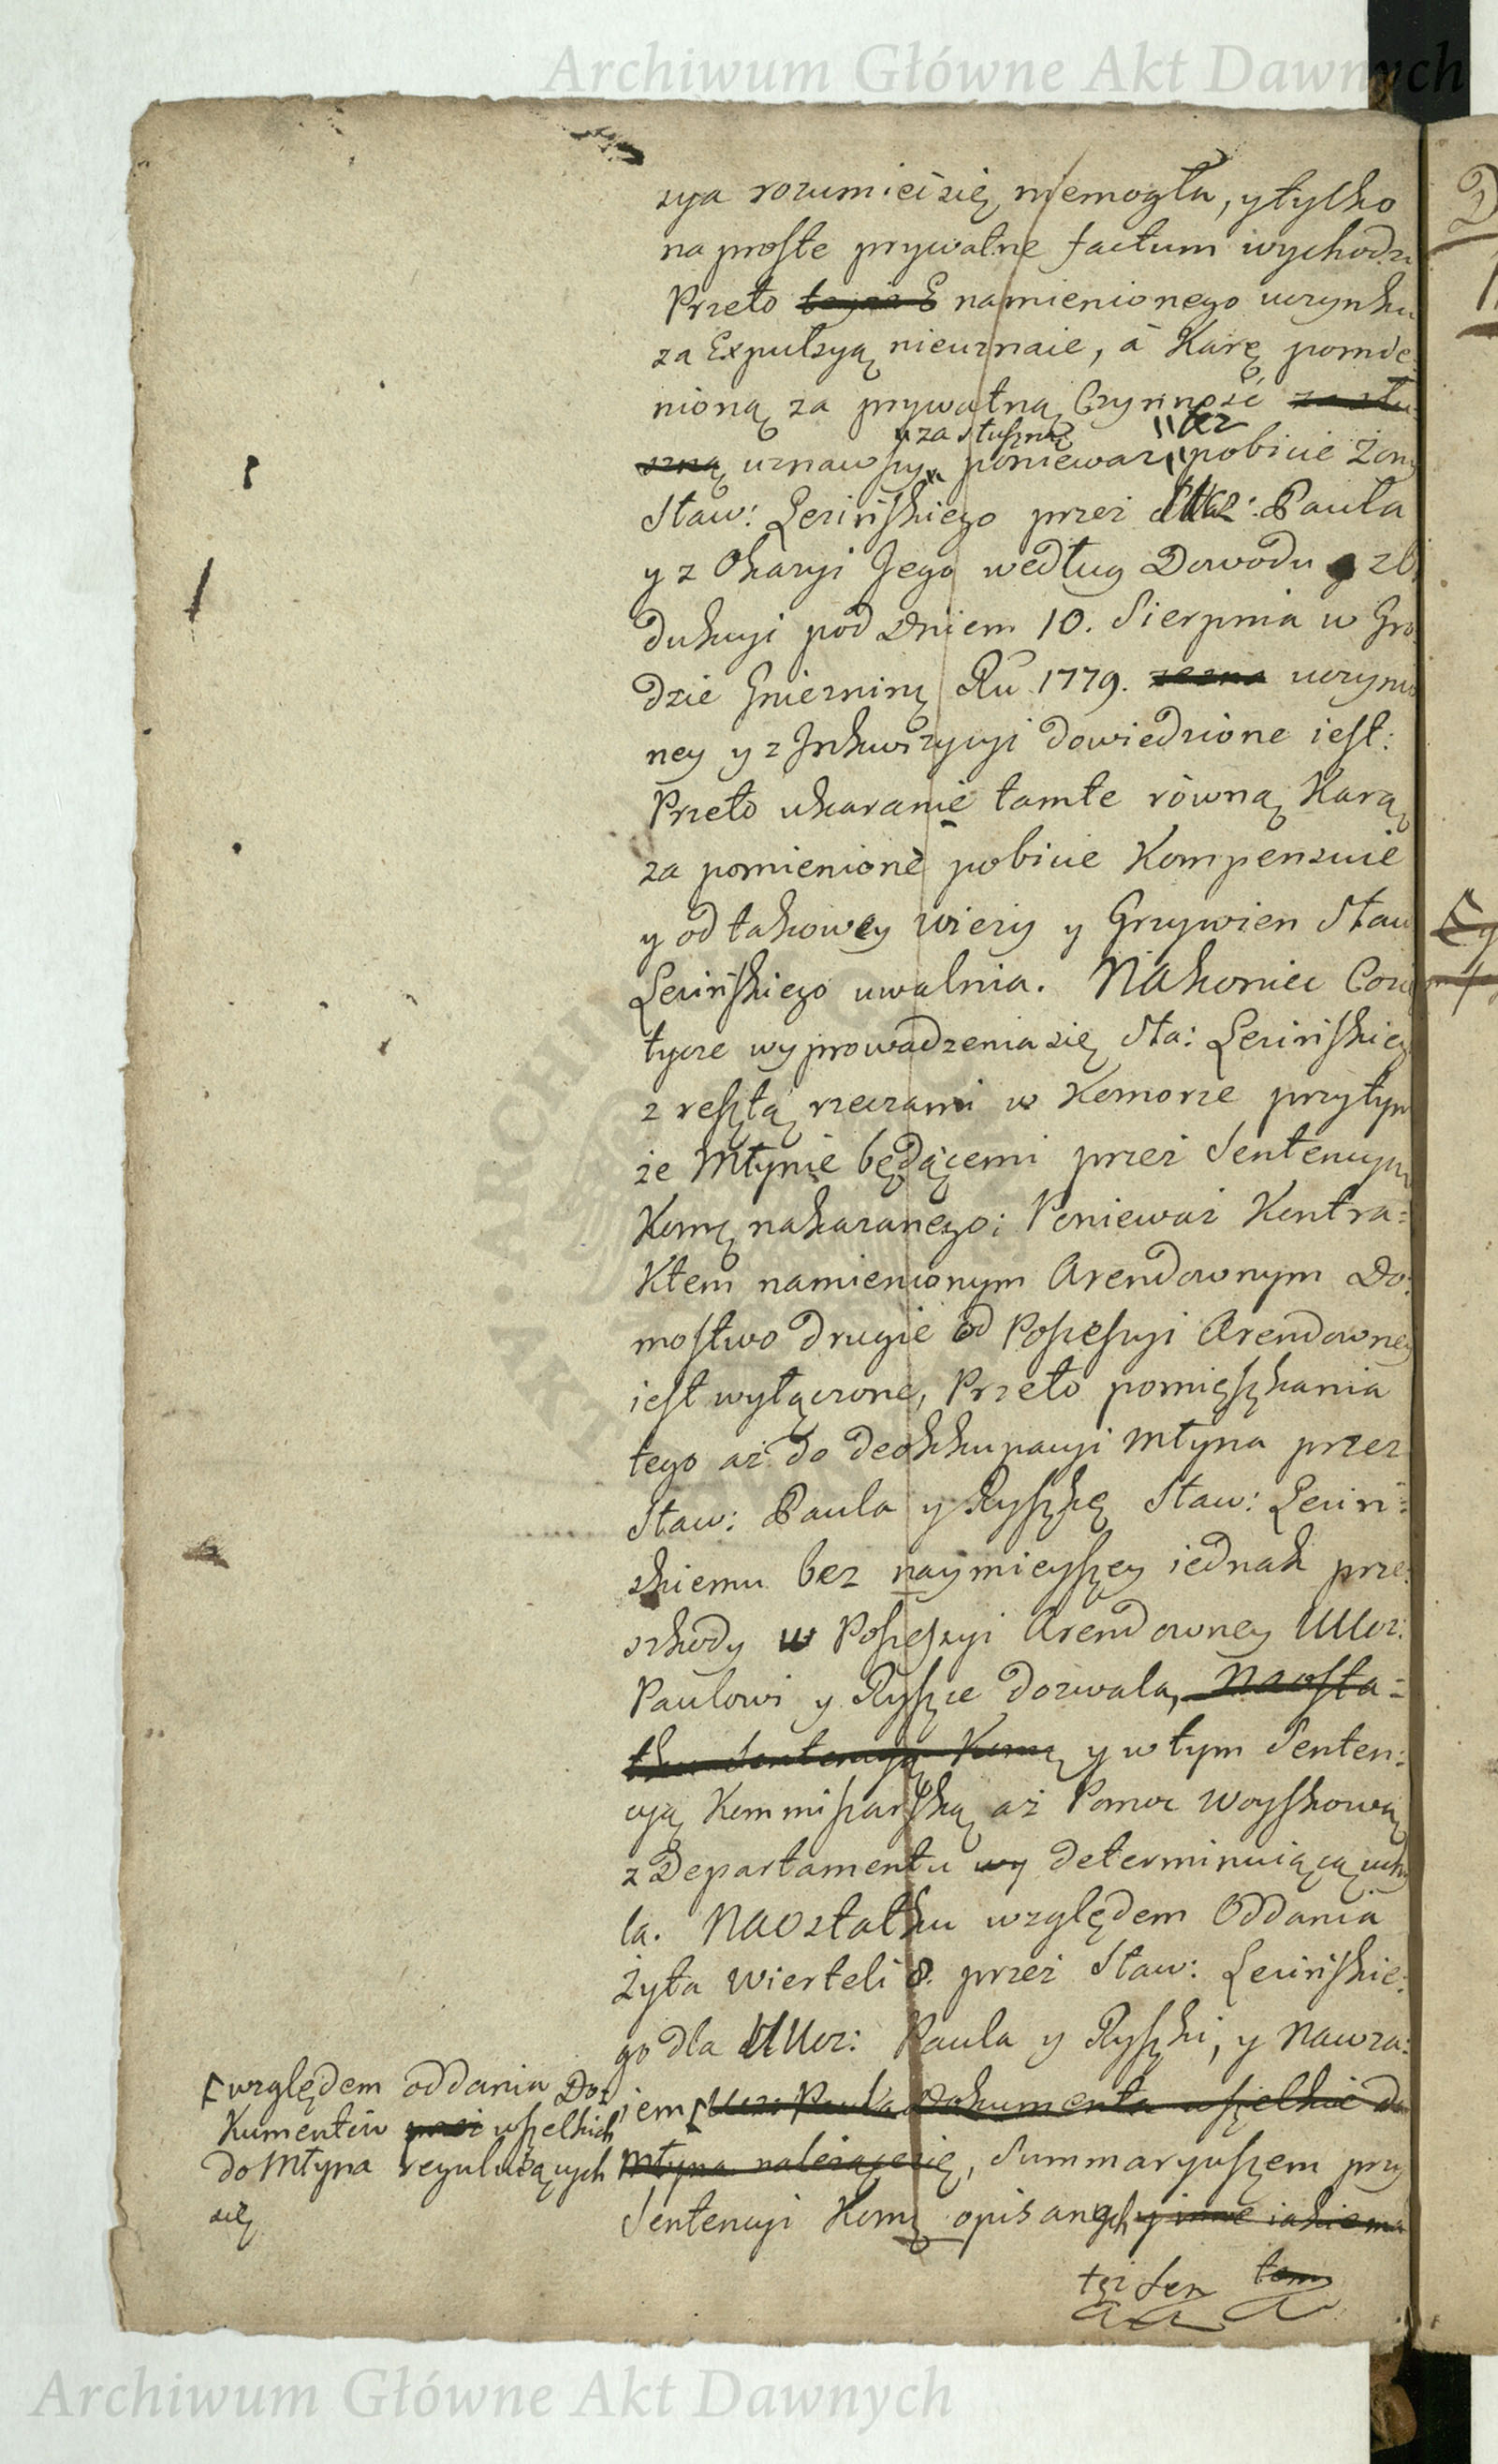 Archiwum Główne Akt Dawnych
zya rozumieć się niemogła, y tylko
na proste prywatne factum wychodzi
Przeto namienionego uczynku
za Expulsyą nieuznaie, à Karę pomie:
nioną za prywatną Czynność za słu:
szną uznawszy y za słuszną ponieważ też pobicie Żony
Sław: Lesińskiego przez Paula
y z Okazyi Jego według Dowodu z Ob
dukcyi pod Dniem 10. Sierpnia w Gro
dzie Gnieznins Ru 1779. uczynio
ney y z Inkwizycyi dowiedzione iest:
Przeto ukaranie tamte równą Karą
za pomienione pobicie Kompensuie
y od takowey wieży y Grzywien Sław
Lesińskiego uwalnia. Nakoniec Co się
tycze wyprowadzenia się Sła: Lesińskieg
z resztą rzeczami w Komorze przytym
że Młynie będącemi przez Sentencyą
Komą nakazanego; Ponieważ Kontra:
Ktem namienionym Arendownym Do:
mostwo drugie od Possessyi Arendowney
iest wyłączone, Przeto pomięszkania
tego aż do deokkupacyi Młyna przez
Sław: Paula y Ryszkę Sław: Lesiń:
skiemu bez naymieyszey iednak prze:
szkody w Possessyi Arendowney UUcz:
Paulowi y Ryszce dozwala, Naosta:
tku Sentencyą Komą y w tym Senten:
cyą Kommissarską aż Pomoc Woyskową
z Departamentu wy determinuiącą uchy
la. Naostatku względem Oddania
Żyta Wierteli 8. przez Sław: Lesińskie:
go dla UUcz: Paula y Ryszki, y Nawza:
iem Ucz: Paula Dokumenta wszelkie do
Młyna należącesię, Summaryuszem przy
Sentencyi Komą opisanych y inne iakie ma
też Sen tam
względem oddania Do:
kumentów przez wszelkich
do Młyna regulujących
się
Archiwum Główne Akt Dawnych